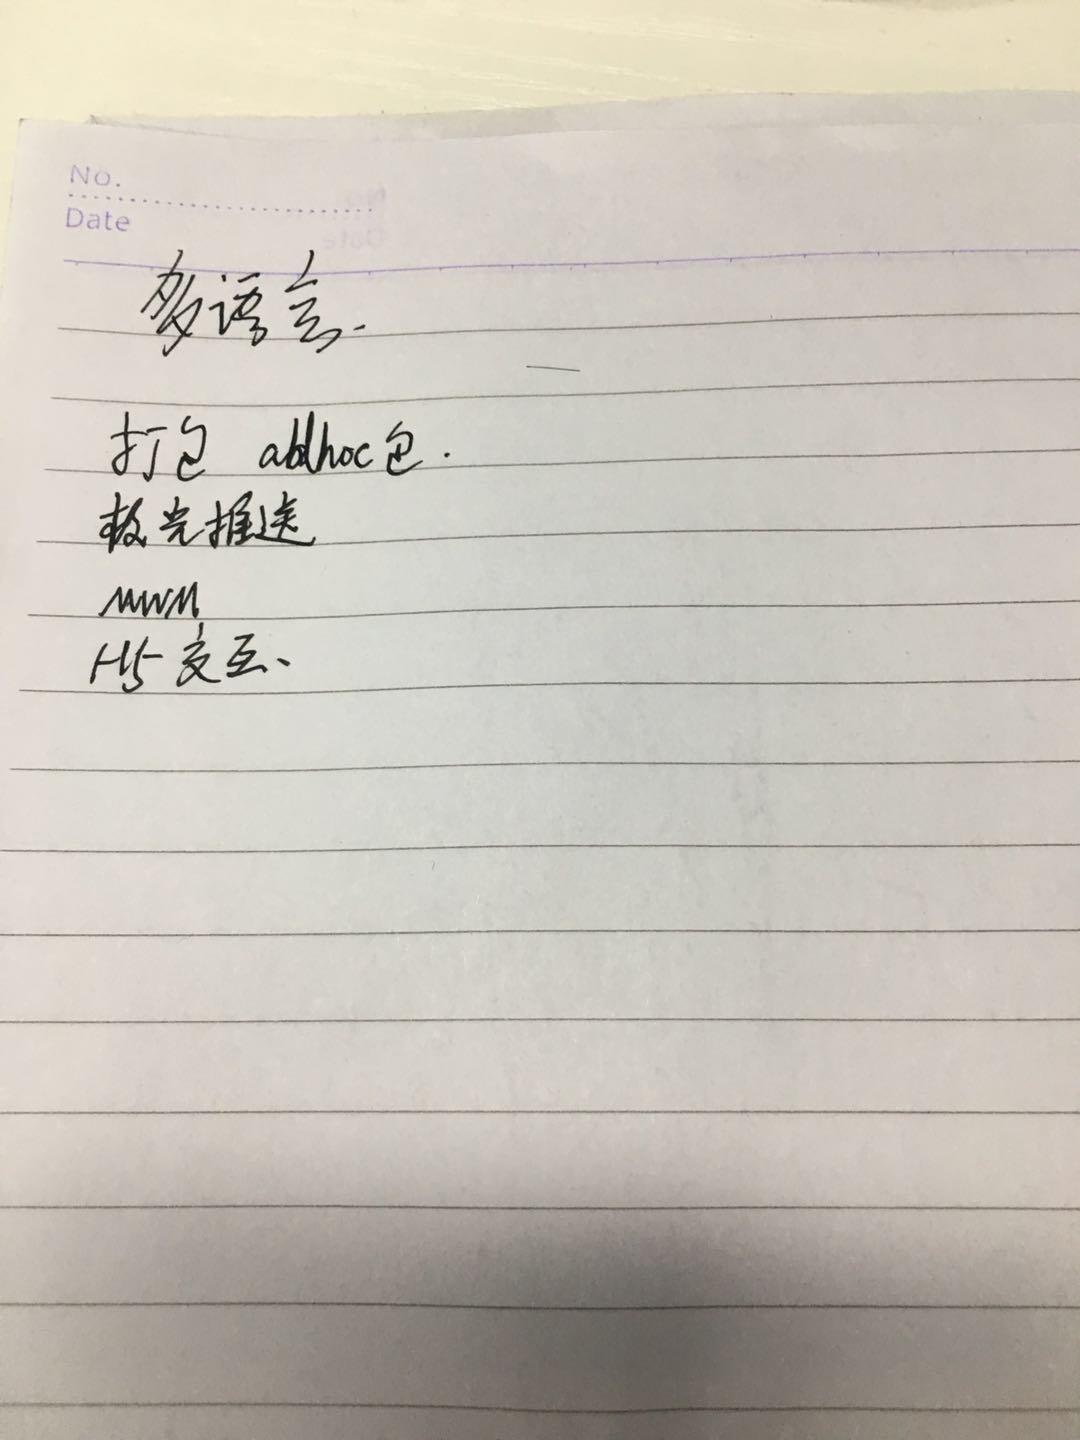 No.
Date
多语言.
打包 adhoc包.
极光推送
H5交互、